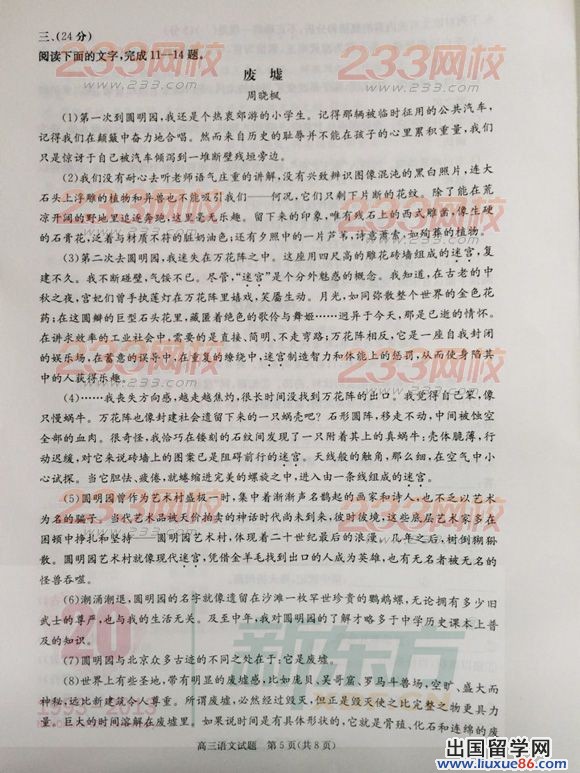 三、(24分)
阅读下面的文字,完成11—14题。
废墟
周晓枫
(1)第一次到圆明园,我还是个热衷郊游的小学生。记得那辆被临时征用的公共汽车,
记得我们在颠簸中奋力地合唱。然而来自历史的耻辱并不能在孩子的心里累积重量,我们
只是惊讶于自己被汽车倾泻到一堆断壁残垣旁边。
(2)我们没有耐心去听老师语气庄重的讲解,没有兴致辨识图像混沌的黑白照片,连大
石头上浮雕的植物和异兽也不能吸引我们——何况,它们只剩下片断的花纹。除了能在荒
凉开阔的野地里追逐奔跑,这里毫无乐趣。留下来的印象,唯有残石上的西式雕凿,像生硬
的石膏花,泛着与材质不符的脏奶油色;还有夕照中的一片芦苇,诗意萧索,如殉葬的植物。
(3)第二次去圆明园,我迷失在万花阵之中。这座用四尺高的雕花砖墙组成的迷宫,复
建不久。我不断碰壁,气馁不已。尽管,“迷宫”是个分外魅惑的概念。我知道,在古老的中
秋之夜,宫妃们曾手执莲灯在万花阵里嬉戏,笑靥生动。月光,如同弥散整个世界的金色花
药;在这圆瓣的巨型石头花里,藏匿着绝色的歌伶与舞姬……迥异于今天,那是已逝的情怀。
在讲求效率的工业社会中,需要的是直接、简明、不走弯路;万花阵相反,它是一座自我封闭
的娱乐场,在蓄意的误导中,在重复的缭绕中,迷宫制造智力和体能上的惩罚,从而使身陷其
中的人获得乐趣。
(4)……我丧失方向感,越走越焦灼,很长时间没找到万花阵的出口。我觉得自己笨,像
只慢蜗牛。万花阵也像封建社会遗留下来的一只蜗壳吧?石形圆阵,移走不动,中间被蚀空
全部的血肉。很奇怪,我恰巧在镂刻的石纹间发现了一只附着其上的真蜗牛:壳体脆薄,行
动迟缓,对它来说砖墙上的图案已是阻碍前行的迷宫。天线般的触角,那么细,在空气中小
心试探。当它胆怯、疲倦,就蜷缩进完美的螺旋之中,进入由一条线组成的迷宫。
(5)圆明园曾作为艺术村盛极一时,集中着渐渐声名鹊起的画家和诗人,也不乏以艺术
为名的骗子。当代艺术品被天价拍卖的神话时代尚未到来,彼时彼境,这些底层艺术家多在
困顿中挣扎和坚持——圆明园艺术村,体现着二十世纪最后的浪漫。几年之后,树倒猢狲
散。圆明园艺术村就像现代迷宫,凭借金羊毛找到出口的人成为英雄,也有无名者被无名的
怪兽吞噬。
(6)潮涌潮退,圆明园的名字就像遗留在沙滩一枚罕世珍贵的鹦鹉螺,无论拥有多少旧
武士的尊严,也与我的生活无关。及至中年,我对圆明园的了解才略多于中学历史课本上普
及的知识。
(7)圆明园与北京众多古迹的不同之处在于:它是废墟。
(8)世界上有些圣地,带有明显的废墟感,比如庞贝、吴哥窟、罗马斗兽场,空旷、盛大而
神秘,远比新建筑令人尊重。所谓废墟,必然经过毁灭,但正是毁灭使之比完整之物更具力
量。巨大的时间溶解在废墟里。如果说时间是有具体形状的,它就是骨殖、化石和连绵的废
高三语文试题 第5页(共8页)
233网校
20
1993-2013
新东方
出国留学网
www.liuxue86.com